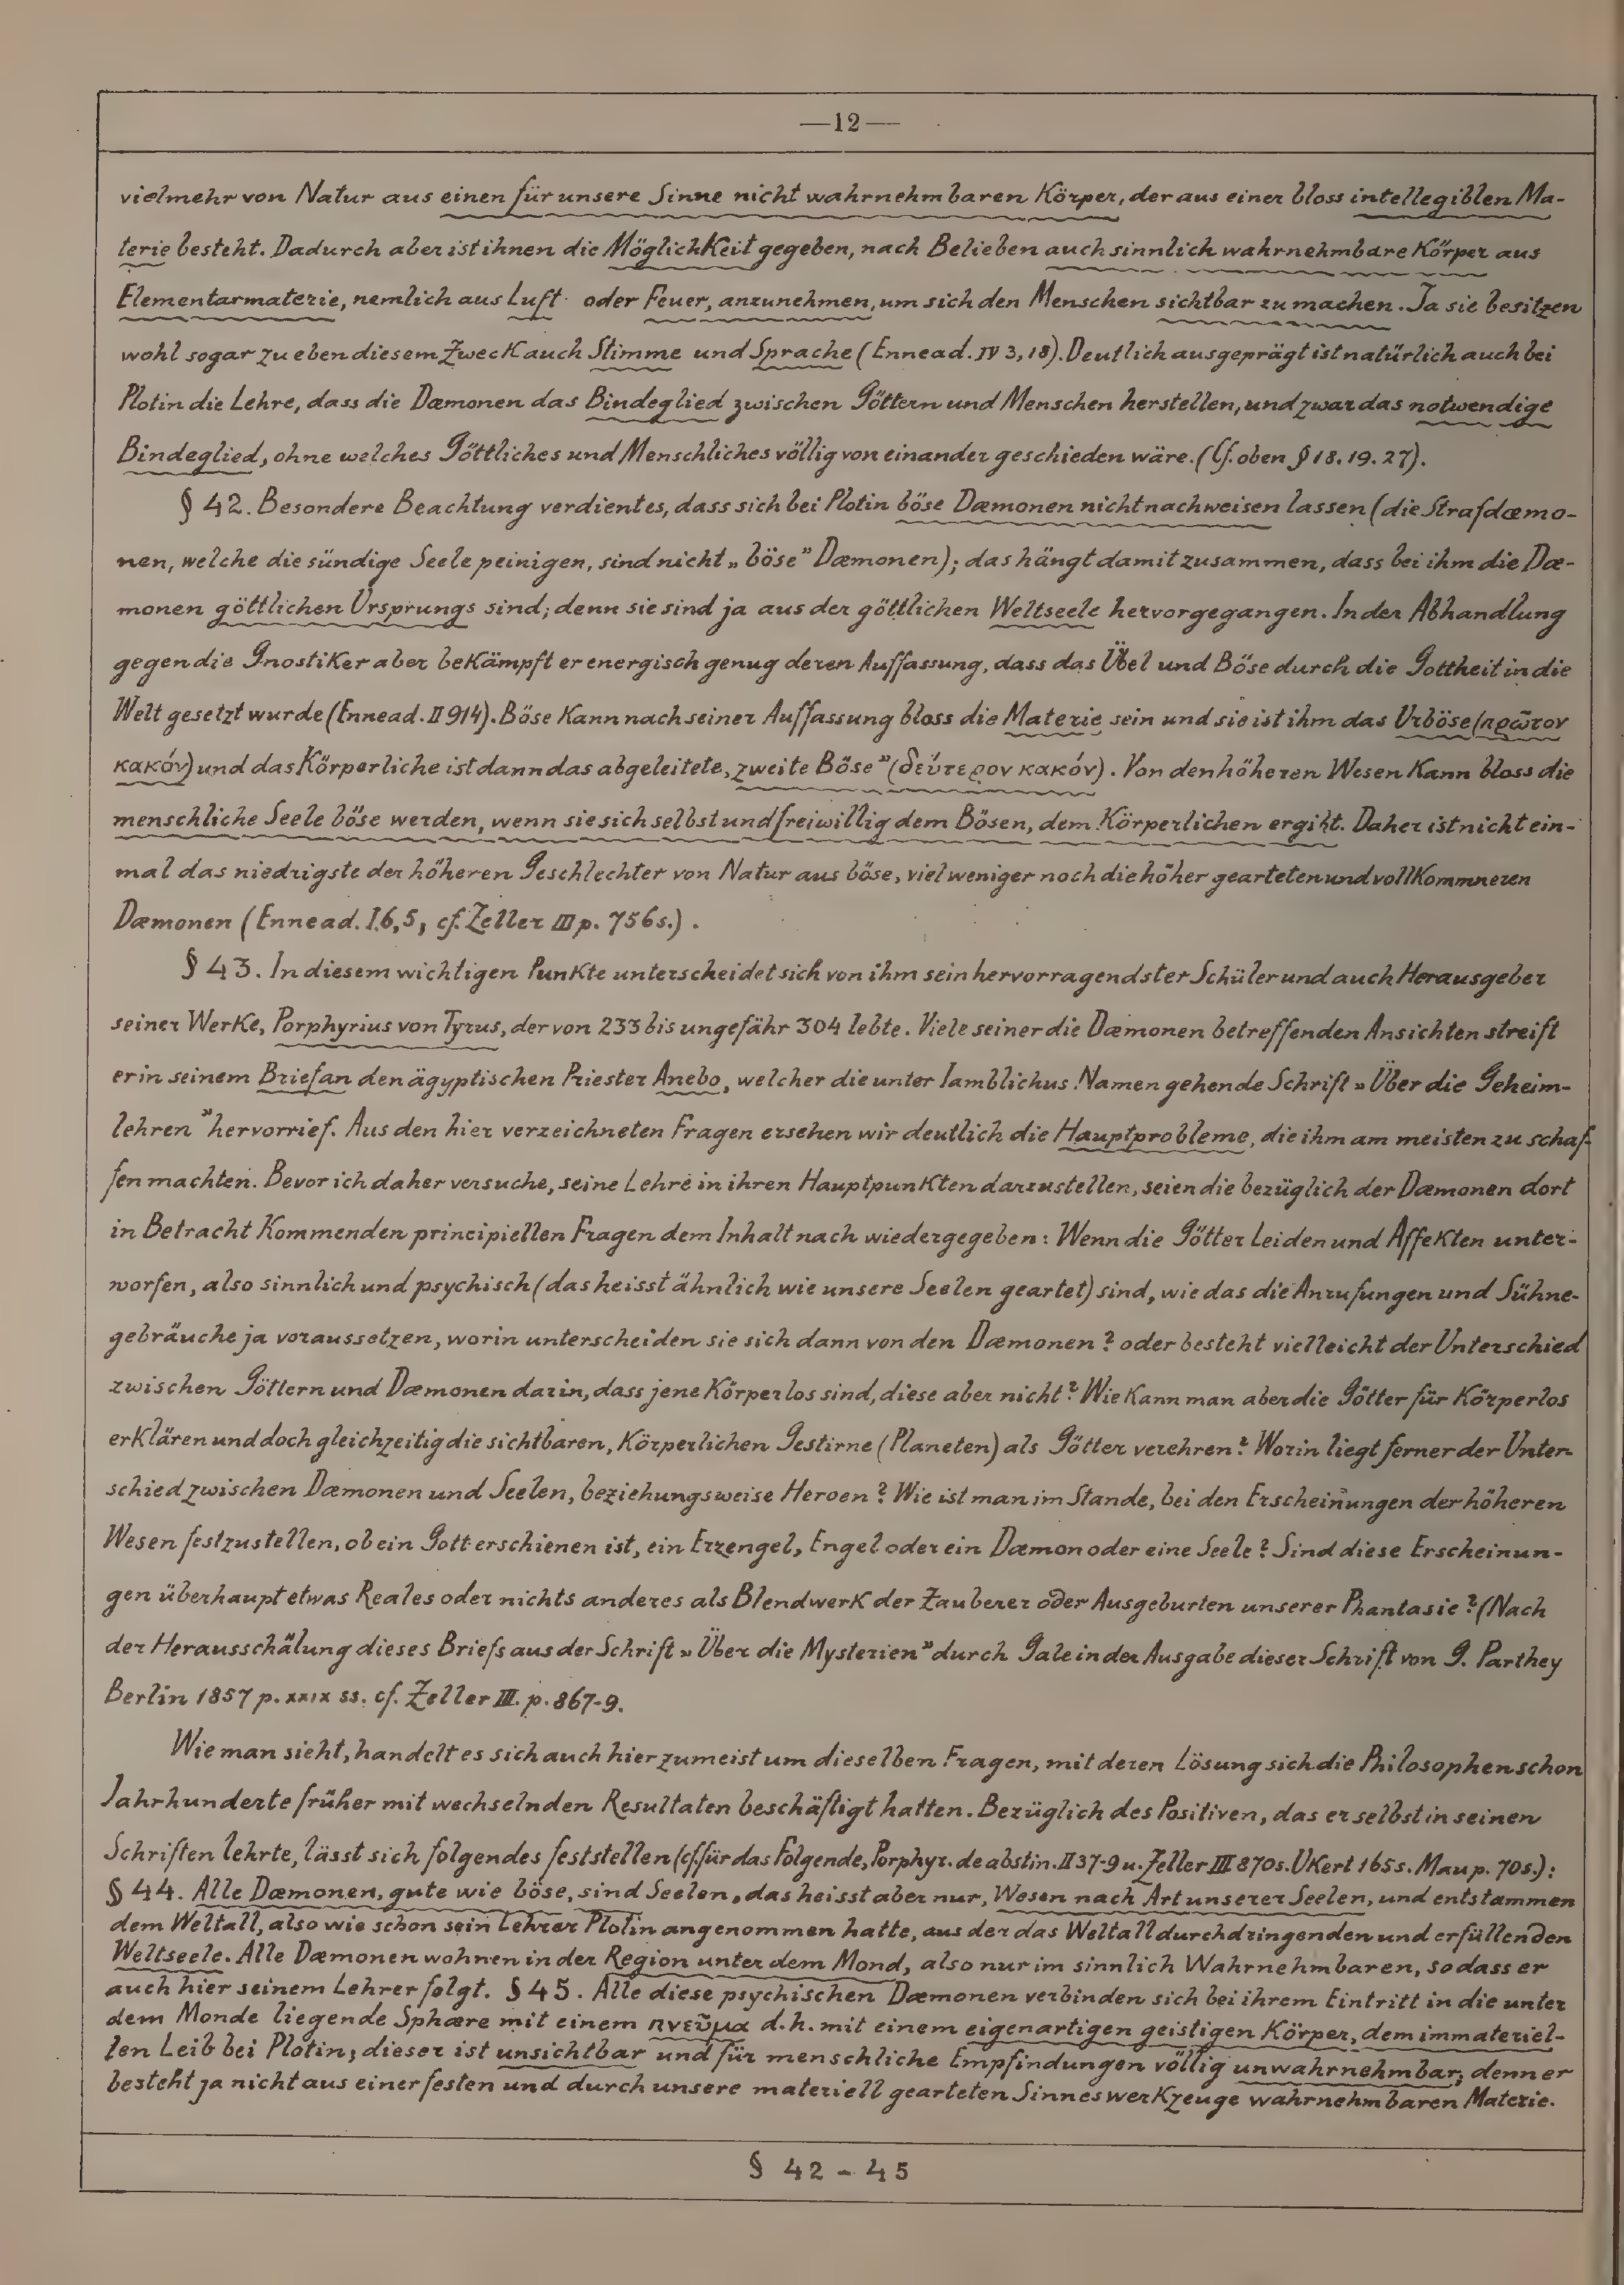 —12—
vielmehr von Natur aus einen für unsere Sinne nicht wahrnehmbaren Körper, der aus einer bloss intellegiblen Ma-
terie besteht. Dadurch aber ist ihnen die Möglichkeit gegeben, nach Belieben auch sinnlich wahrnehmbare Körper aus
Elementarmaterie, nemlich aus Luft oder Feuer, anzunehmen, um sich den Menschen sichtbar zu machen. Ja sie besitzen
wohl sogar zu eben diesem Zweck auch Stimme und Sprache (Ennead. IV 3, 18). Deutlich ausgeprägt ist natürlich auch bei
Plotin die Lehre, dass die Dæmonen das Bindeglied zwischen Göttern und Menschen herstellen, und zwar das notwendige
Bindeglied, ohne welches Göttliches und Menschliches völlig von einander geschieden wäre. (Cf. oben § 18. 19. 27).
§ 42. Besondere Beachtung verdient es, dass sich bei Plotin böse Dæmonen nicht nachweisen lassen (die Strafdæmo-
nen, welche die sündige Seele peinigen, sind nicht „böse” Dæmonen); das hängt damit zusammen, dass bei ihm die Dæ-
monen göttlichen Ursprungs sind; denn sie sind ja aus der göttlichen Weltseele hervorgegangen. In der Abhandlung
gegen die Gnostiker aber bekämpft er energisch genug deren Auffassung, dass das Übel und Böse durch die Gottheit in die
Welt gesetzt wurde (Ennead. II 9 14). Böse kann nach seiner Auffassung bloss die Materie sein und sie ist ihm das Urböse (πρῶτον
κακόν) und das Körperliche ist dann das abgeleitete, zweite Böse” (δεύτερον κακόν). Von den höheren Wesen kann bloss die
menschliche Seele böse werden, wenn sie sich selbst und freiwillig dem Bösen, dem Körperlichen ergibt. Daher ist nicht ein-
mal das niedrigste der höheren Geschlechter von Natur aus böse, viel weniger noch die höher gearteten und vollkommneren
Dæmonen (Ennead. I.6,5, cf. Zeller III p. 756s.).
§ 43. In diesem wichtigen Punkte unterscheidet sich von ihm sein hervorragendster Schüler und auch Herausgeber
seiner Werke, Porphyrius von Tyrus, der von 233 bis ungefähr 304 lebte. Viele seiner die Dæmonen betreffenden Ansichten streift
er in seinem Brief an den ägyptischen Priester Anebo, welcher die unter Iamblichus Namen gehende Schrift „Über die Geheim-
lehren” hervorrief. Aus den hier verzeichneten Fragen ersehen wir deutlich die Hauptprobleme, die ihm am meisten zu schaf-
fen machten. Bevor ich daher versuche, seine Lehre in ihren Hauptpunkten darzustellen, seien die bezüglich der Dæmonen dort
in Betracht kommenden principiellen Fragen dem Inhalt nach wiedergegeben: Wenn die Götter Leiden und Affekten unter-
worfen, also sinnlich und psychisch (das heisst ähnlich wie unsere Seelen geartet) sind, wie das die Anrufungen und Sühne-
gebräuche ja voraussetzen, worin unterscheiden sie sich dann von den Dæmonen? oder besteht vielleicht der Unterschied
zwischen Göttern und Dæmonen darin, dass jene körperlos sind, diese aber nicht? Wie kann man aber die Götter für körperlos
erklären und doch gleichzeitig die sichtbaren, körperlichen Gestirne (Planeten) als Götter verehren? Worin liegt ferner der Unter-
schied zwischen Dæmonen und Seelen, beziehungsweise Heroen? Wie ist man im Stande, bei den Erscheinungen der höheren
Wesen festzustellen, ob ein Gott erschienen ist, ein Erzengel, Engel oder ein Dæmon oder eine Seele? Sind diese Erscheinun-
gen überhaupt etwas Reales oder nichts anderes als Blendwerk der Zauberer oder Ausgeburten unserer Phantasie? (Nach
der Herausschälung dieses Briefs aus der Schrift „Über die Mysterien” durch Gale in der Ausgabe dieser Schrift von G. Parthey
Berlin 1857 p. XXIX ss. cf. Zeller III. p. 867-9.
Wie man sieht, handelt es sich auch hier zumeist um dieselben Fragen, mit deren Lösung sich die Philosophen schon
Jahrhunderte früher mit wechselnden Resultaten beschäftigt hatten. Bezüglich des Positiven, das er selbst in seinen
Schriften lehrte, lässt sich folgendes feststellen (cf. für das Folgende, Porphyr. de abstin. II 37-9 u. Zeller III 870s. Ukert 165s. Mau p. 70s.):
§ 44. Alle Dæmonen, gute wie böse, sind Seelen, das heisst aber nur, Wesen nach Art unserer Seelen, und entstammen
dem Weltall, also wie schon sein Lehrer Plotin angenommen hatte, aus der das Weltall durchdringenden und erfüllenden
Weltseele. Alle Dæmonen wohnen in der Region unter dem Mond, also nur im sinnlich Wahrnehmbaren, sodass er
auch hier seinem Lehrer folgt. § 45. Alle diese psychischen Dæmonen verbinden sich bei ihrem Eintritt in die unter
dem Monde liegende Sphære mit einem πνεῦμα d.h. mit einem eigenartigen geistigen Körper, dem immateriel-
len Leib bei Plotin; dieser ist unsichtbar und für menschliche Empfindungen völlig unwahrnehmbar; denn er
besteht ja nicht aus einer festen und durch unsere materiell gearteten Sinneswerkzeuge wahrnehmbaren Materie.
§ 42 - 45